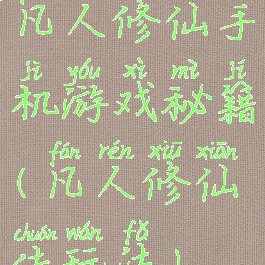 凡人修仙手
jī yóu xì mì jí
机游戏秘籍
fán rén xiū xiān
(凡人修仙
chuán wán fǎ
传玩法)